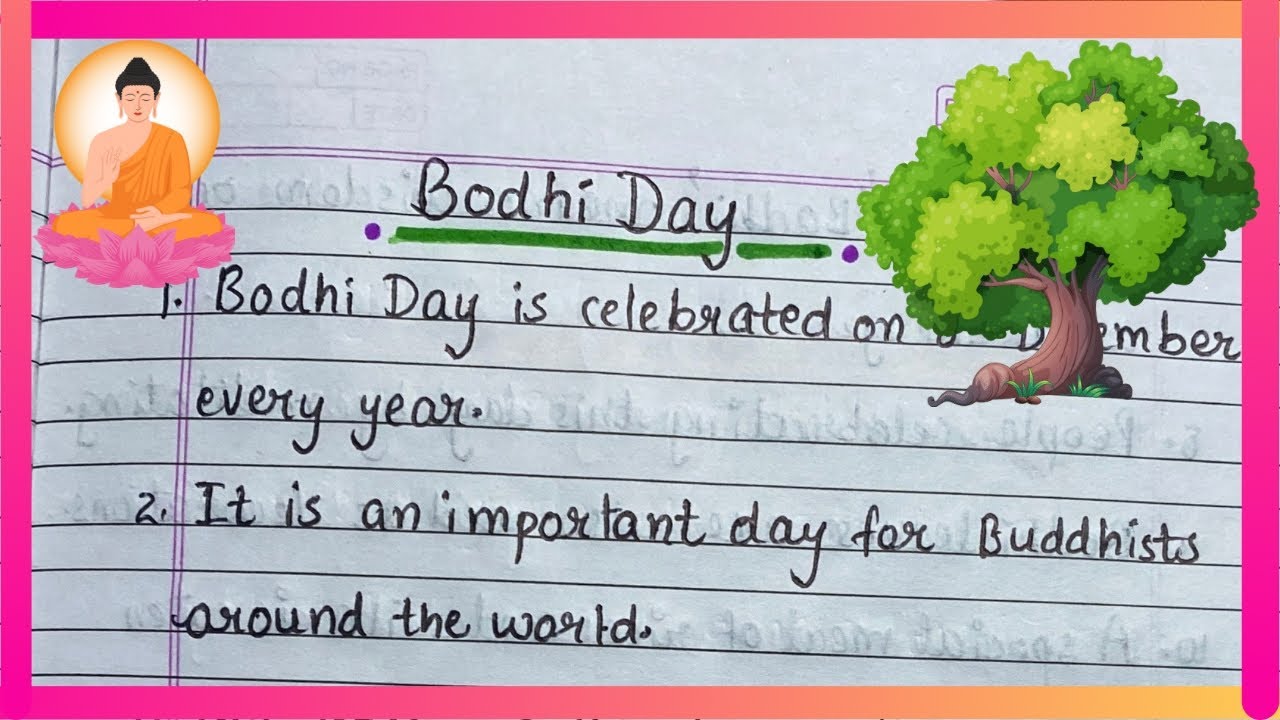 Bodhi Day
1. Bodhi Day is celebrated on December
every year.
2. It is an important day for Buddhists
around the world.